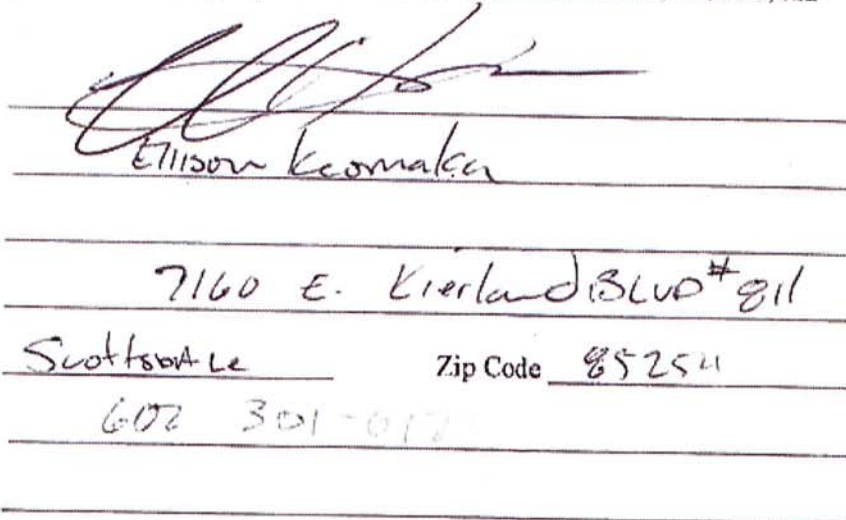 Ellison Keomaka
7160 E. Kierland BLVD # 811
Scottsdale Zip Code 85254
602 301-